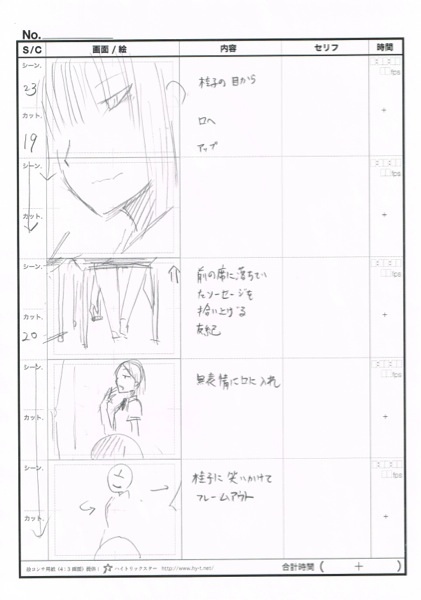 No.
S/C 画面 / 絵 内容 セリフ 時間
シーン.
23
カット.
19
桂子の目から
口へ
アップ
fps
+
シーン.
カット.
fps
+
シーン.
カット.
20
前の席に落ちてい
たソーセージを
拾い上げる
友紀
fps
+
シーン.
カット.
無表情に口に入れ
fps
+
シーン.
カット.
桂子に笑いかけて
フレームアウト
fps
+
絵コンテ用紙 (4:3 ハイトリックスター http://www.hy-t.net/
合計時間 ( + )